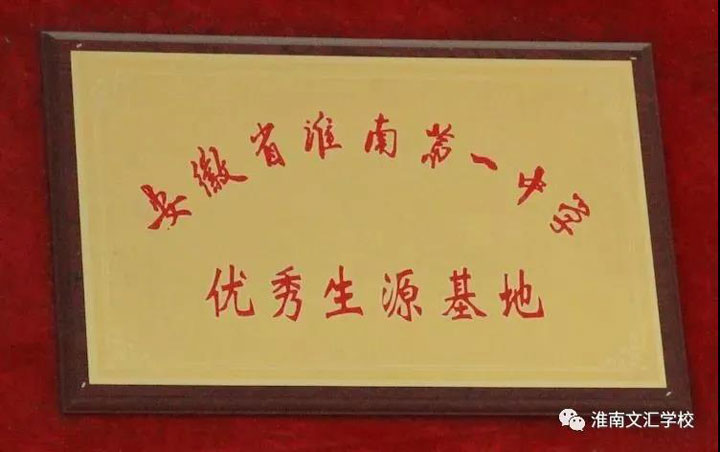 安徽省淮南第一中学
优秀生源基地
淮南文汇学校